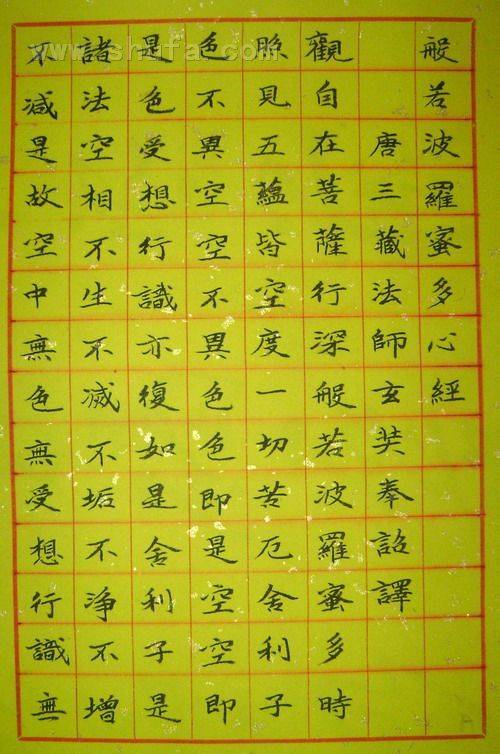 般若波羅蜜多心經
唐三藏法師玄奘奉詔譯
觀自在菩薩行深般若波羅蜜多時
照見五蘊皆空度一切苦厄舍利子
色不異空空不異色色即是空空即
是色受想行識亦復如是舍利子是
諸法空相不生不滅不垢不净不增
不減是故空中無色無受想行識無